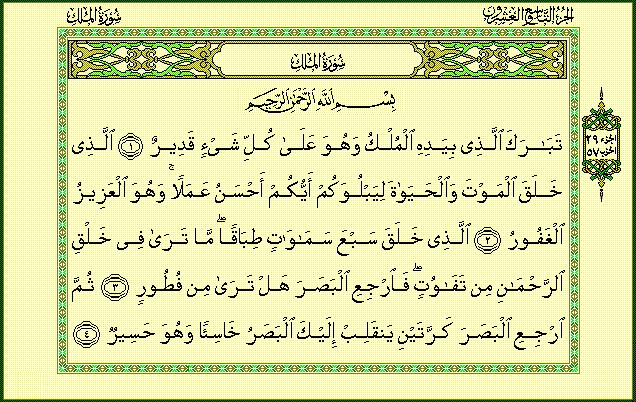 الجزء التاسع والعشرون
سورة الملك
سورة الملك
بسم الله الرحمن الرحيم
تَبَٰرَكَ ٱلَّذِى بِيَدِهِ ٱلْمُلْكُ وَهُوَ عَلَىٰ كُلِّ شَىْءٍ قَدِيرٌ ١ ٱلَّذِى
خَلَقَ ٱلْمَوْتَ وَٱلْحَيَوٰةَ لِيَبْلُوَكُمْ أَيُّكُمْ أَحْسَنُ عَمَلًا ۚ وَهُوَ ٱلْعَزِيزُ
ٱلْغَفُورُ ٢ ٱلَّذِى خَلَقَ سَبْعَ سَمَٰوَٰتٍ طِبَاقًا ۖ مَّا تَرَىٰ فِى خَلْقِ
ٱلرَّحْمَٰنِ مِن تَفَٰوُتٍ ۖ فَٱرْجِعِ ٱلْبَصَرَ هَلْ تَرَىٰ مِن فُطُورٍ ٣ ثُمَّ
ٱرْجِعِ ٱلْبَصَرَ كَرَّتَيْنِ يَنقَلِبْ إِلَيْكَ ٱلْبَصَرُ خَاسِئًا وَهُوَ حَسِيرٌ ٤
جزء ٢٩
حزب ٥٧